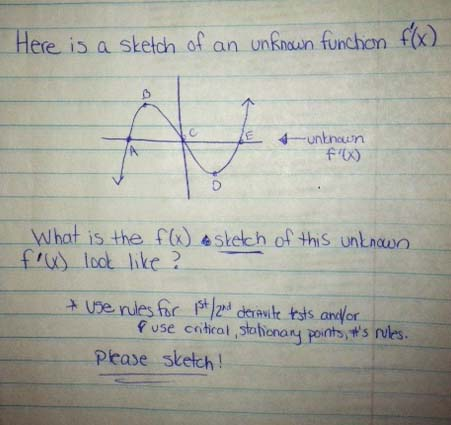 Here is a sketch of an unknown function f'(x)
B
C
E
unknown
A
f'(x)
D
What is the f(x) sketch of this unknown
f'(x) look like?
* Use rules for 1st/2nd deravite tests and/or
use critical, stationary points, #'s rules.
Please sketch!